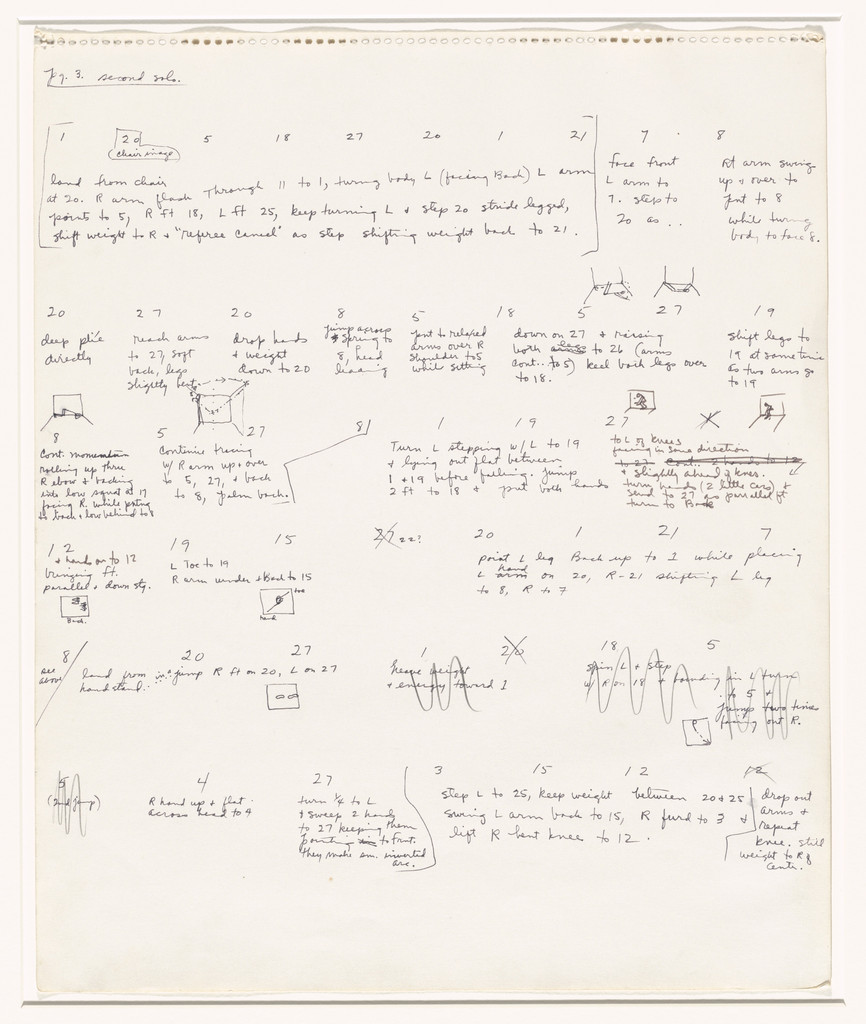 Pg. 3. second solo.
1 20 5 18 27 20 1 21 7 8
(chair image)
land from chair
at 20. R arm flash through 11 to 1, turning body L (facing Back) L arm
points to 5, R ft 18, L ft 25, keep turning L & step 20 stride legged,
shift weight to R & "referee cancel" as step shifting weight back to 21.
face front
L arm to
7. step to
20 as ..
Rt arm swing
up & over to
pnt to 8
while turning
body to face 8.
20 27 20 8 5 18 5 27 19
deep plié
directly
reach arms
to 27, soft
back, legs
slightly bent
drop hands
& weight
down to 20
jump across
& spring to
8, head
leading
pnt to relaxed
arms over R
shoulder to 5
while sitting
down on 27 & raising
both legs to 26 (arms
cont.. to 5) keel back legs over
to 18.
shift legs to
19 at same time
as two arms go
to 19
8 5 27 8 1 19 27
cont. momentum
rolling up thru
R elbow & backing
into low squat at 17
facing R. while pntng
to back & low behind to 8
continue tracing
w/ R arm up & over
to 5, 27, & back
to 8, palm back.
Turn L stepping w/ L to 19
& lying out flat between
1 & 19 before falling. jump
2 ft to 18 & put both hands
to L of knees
facing in same direction
to 27 hands to 12
& slightly ahead of knees.
turn hands (2 little cars) &
send to 27 as parallel ft
turn to Back
12 19 15 27 22? 20 1 21 7
& hands on to 12
bringing ft.
parallel & down stg.
Back.
L Toe to 19
R arm under & Back to 15
toe
head
point L leg Back up to 1 while placing
L hand arm on 20, R-21 shifting L leg
to 8, R to 7
8 20 27 1 20 18 5
see
above
land from jump R ft on 20, L on 27
handstand.
heave weight
& energy toward 1
spin L & step
w/ R on 18 & bounding in L turn
to 5 &
jump two times
facing out R.
5 4 27 3 15 12 12
(2nd jump)
R hand up & flat
across head to 4
turn 1/4 to L
& sweep 2 hands
to 27 keeping them
pointing to front.
they make sm. inverted
arc.
step L to 25, keep weight between 20 & 25
swing L arm back to 15, R fwrd to 3 &
lift R bent knee to 12.
drop out
arms &
repeat
knee. still
weight to R of
Centr.